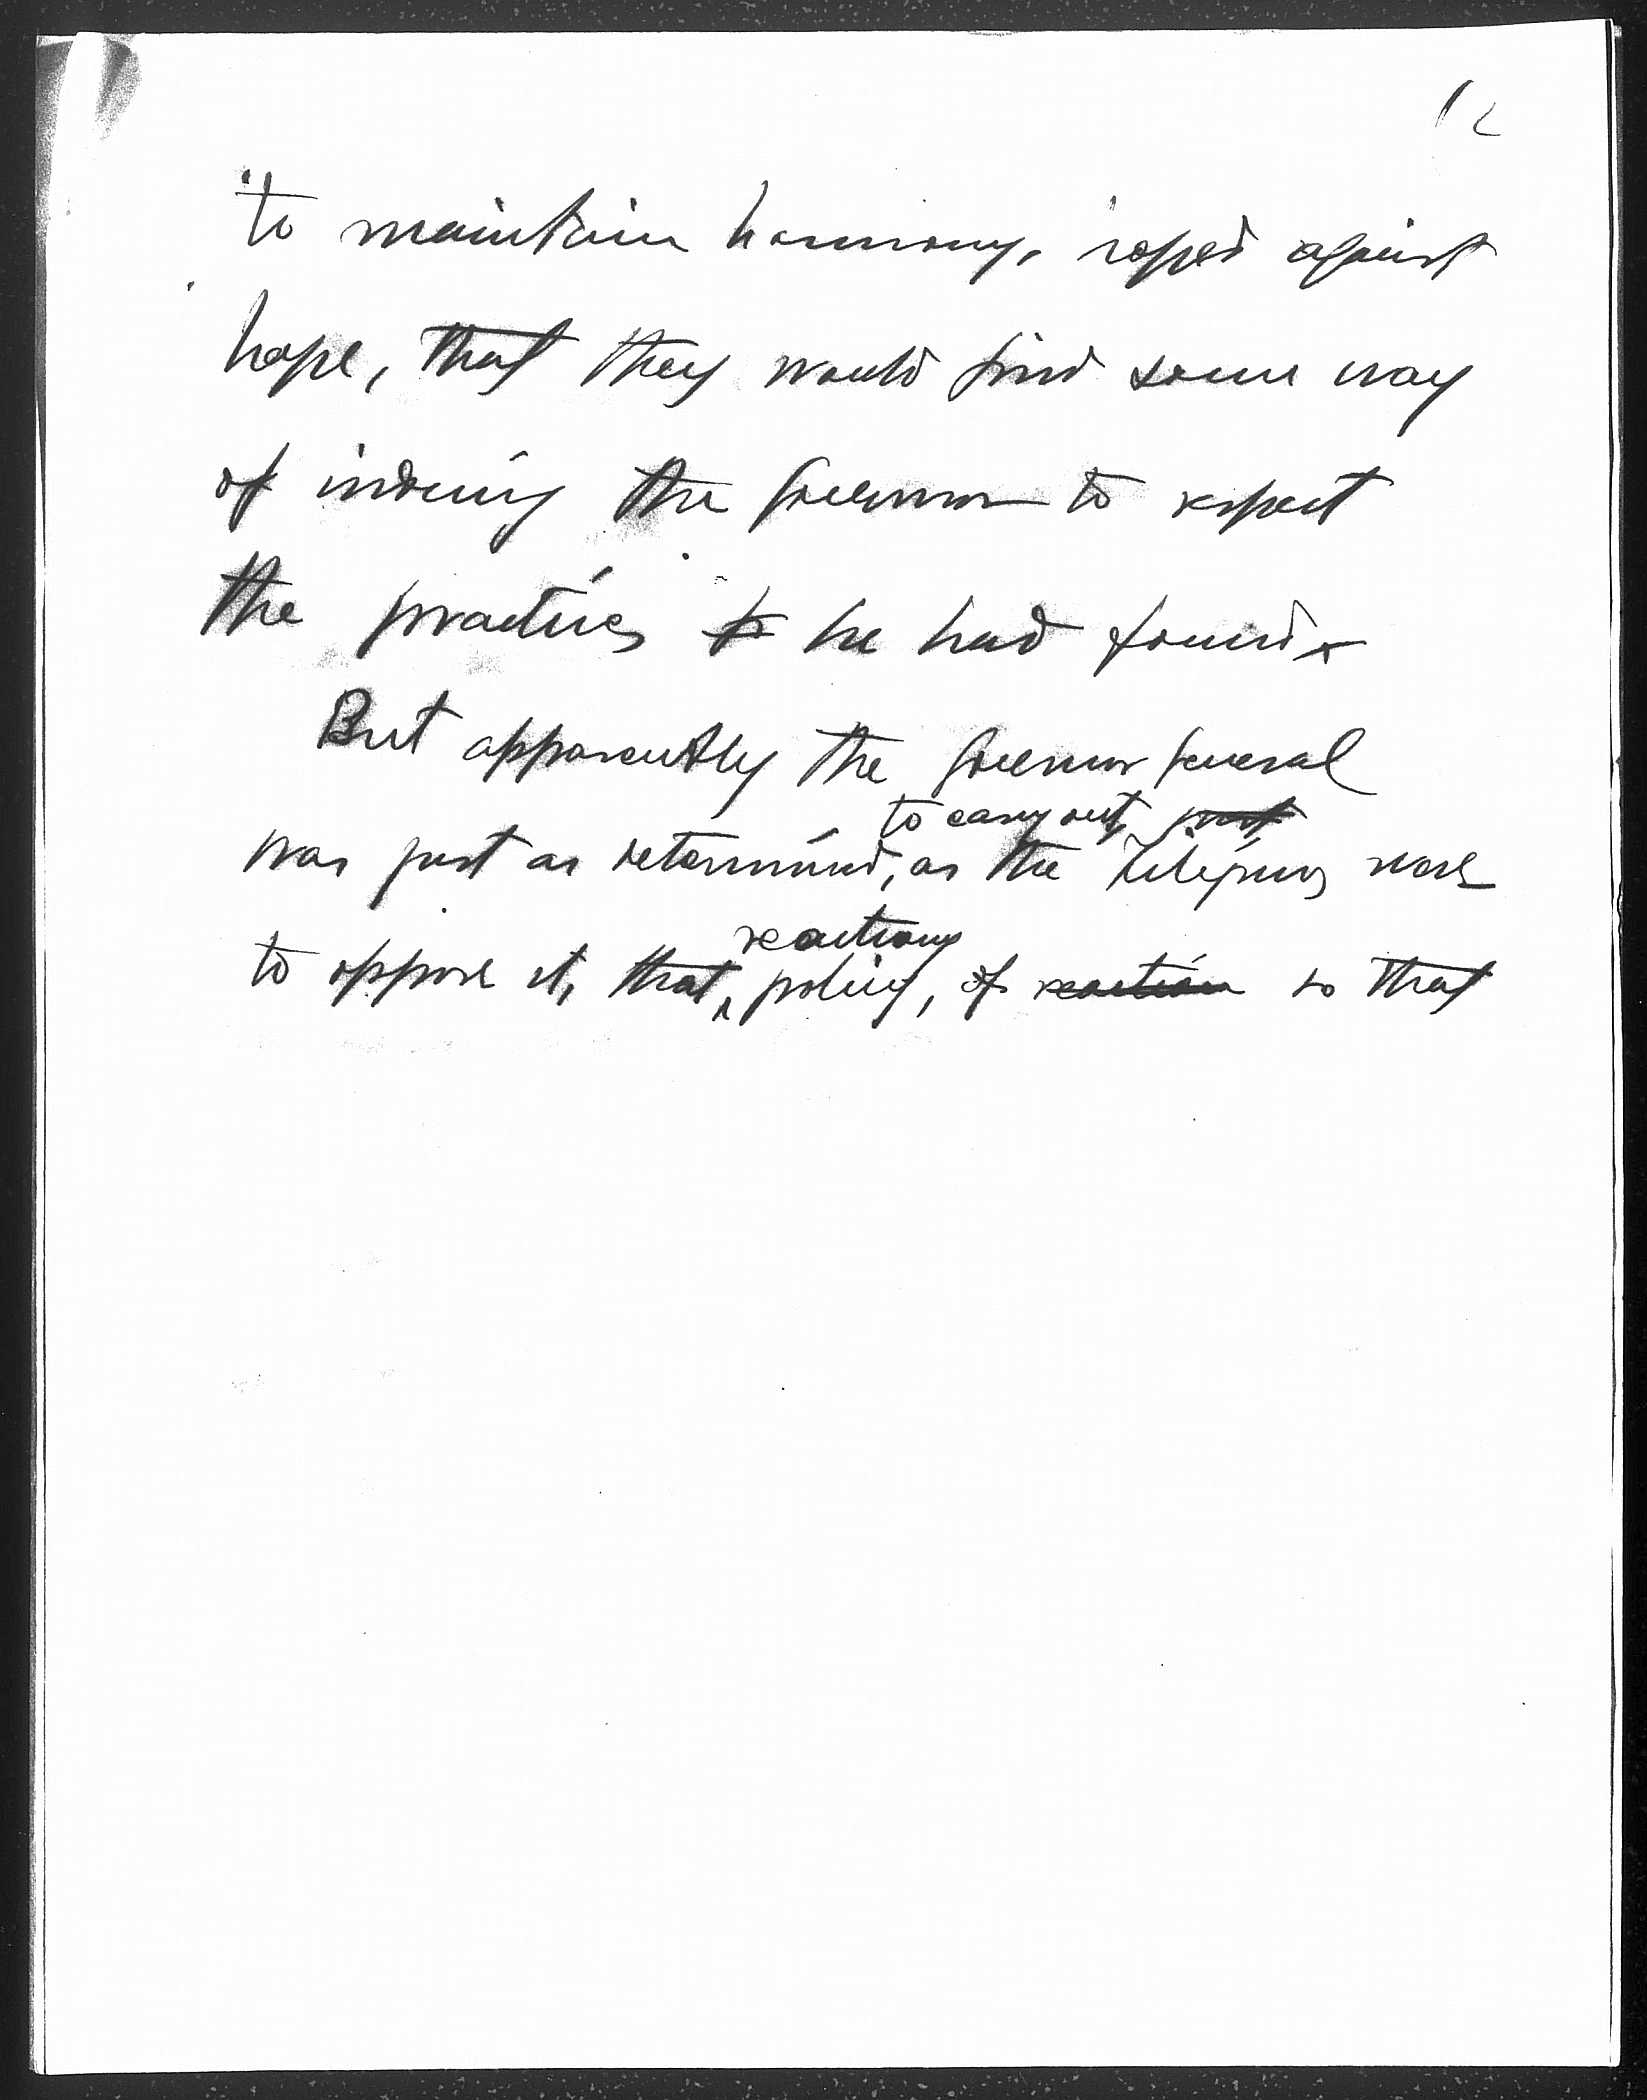 12
to maintain harmony, hoped against
hope, that they would find some way
of inducing the Governor to respect
the practices he had found.
But apparently the Governor General
to carry out, just
was just as determined, as the Filipinos were
reactionary
to oppose it, that policy, of reaction so that